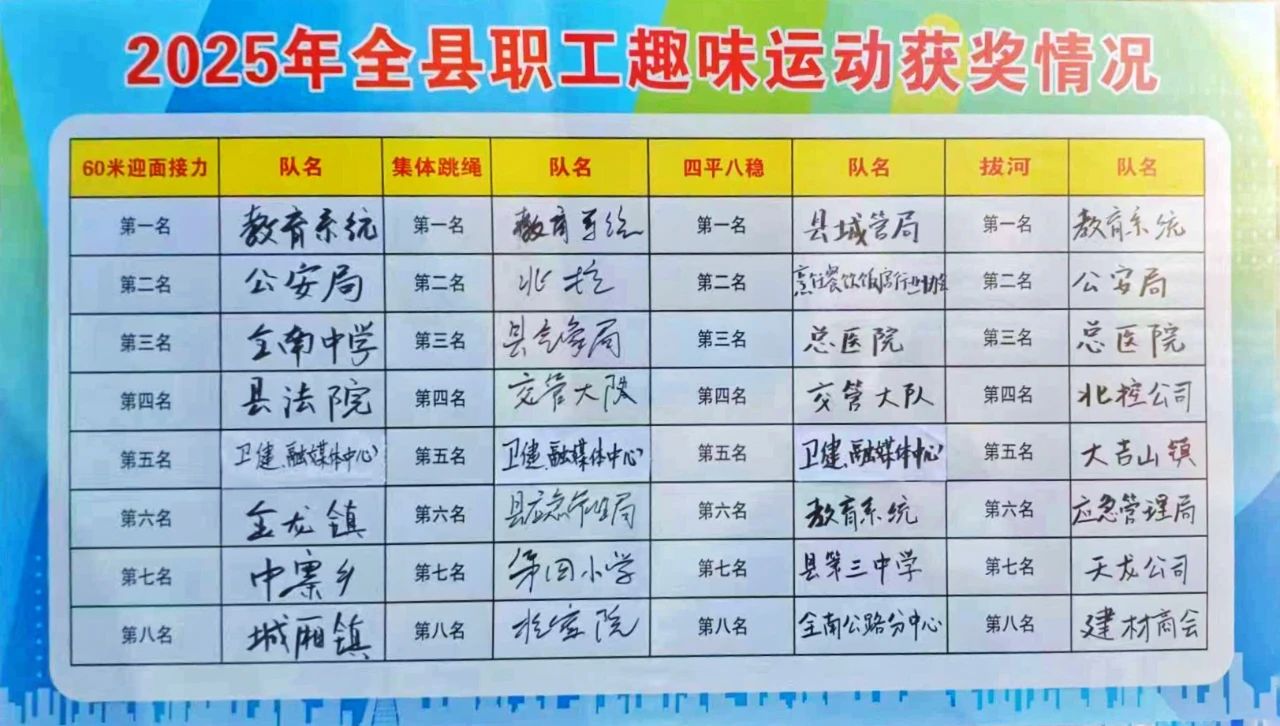 2025年全县职工趣味运动获奖情况
60米迎面接力 队名 集体跳绳 队名 四平八稳 队名 拔河 队名
第一名 教育系统 第一名 教育系统 第一名 县城管局 第一名 教育系统
第二名 公安局 第二名 北控 第二名 第二名 公安局
第三名 全南中学 第三名 第三名 总医院 第三名 总医院
第四名 县法院 第四名 交管大队 第四名 交管大队 第四名 北控公司
第五名 卫健、融媒体中心 第五名 卫健、融媒体中心 第五名 卫健、融媒体中心 第五名 大吉山镇
第六名 金龙镇 第六名 县应急管理局 第六名 教育系统 第六名 应急管理局
第七名 中寨乡 第七名 第四小学 第七名 县第三中学 第七名 天龙公司
第八名 城厢镇 第八名 检察院 第八名 全南公路分中心 第八名 建材商会